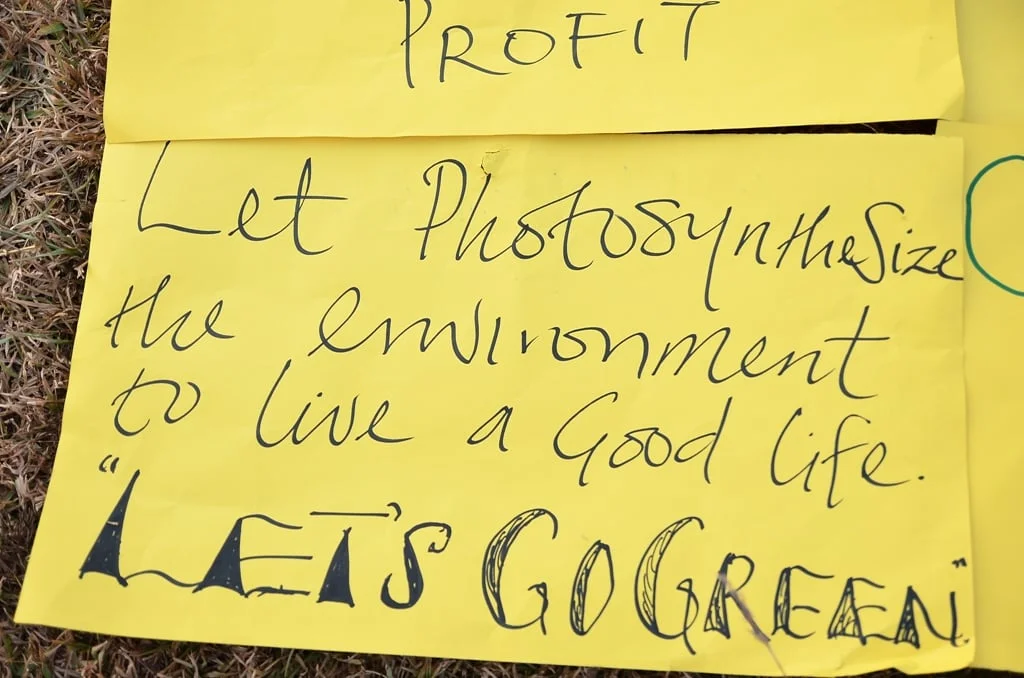 PROFIT
Let PhotosyntheSize
the environment
to live a Good life.
"LET'S GO GREEN."